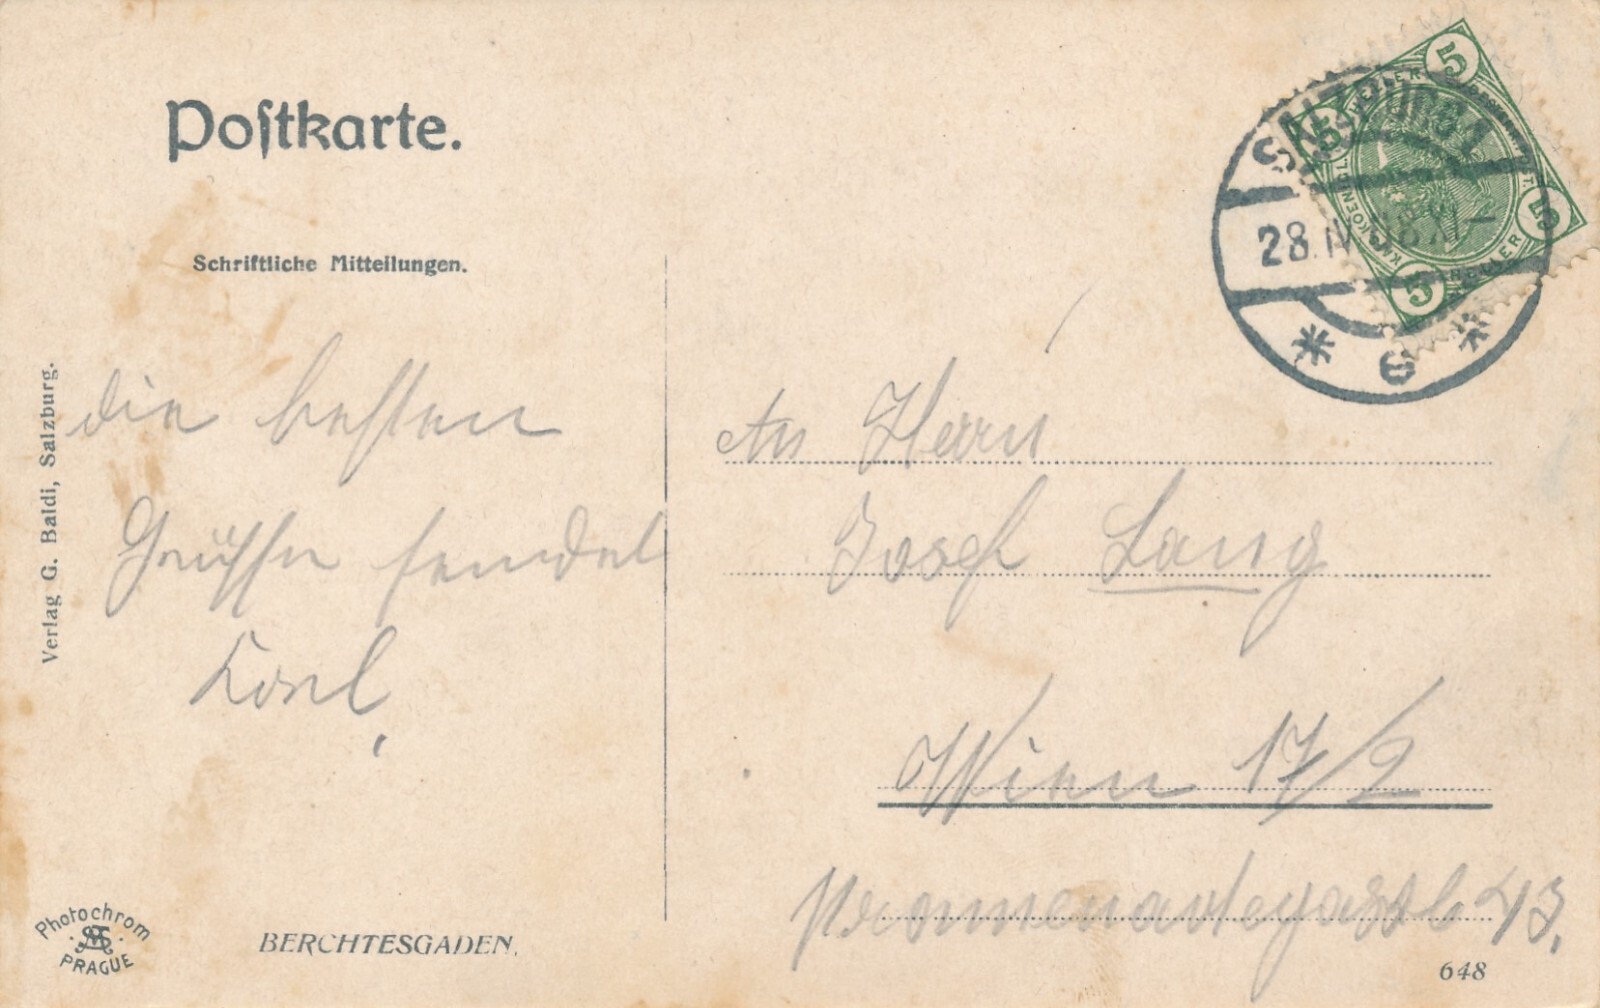 Postkarte.
Schriftliche Mitteilungen.
die besten
Grüsse sendet
Verlag G. Baldi, Salzburg.
Photochrom
PRAGUE
BERCHTESGADEN.
SALZBURG 1
28.IV.
* e *
5 5 5 5
HELLER HELLER
An Herrn
Josef Lang
Wien 17/2
43.
648